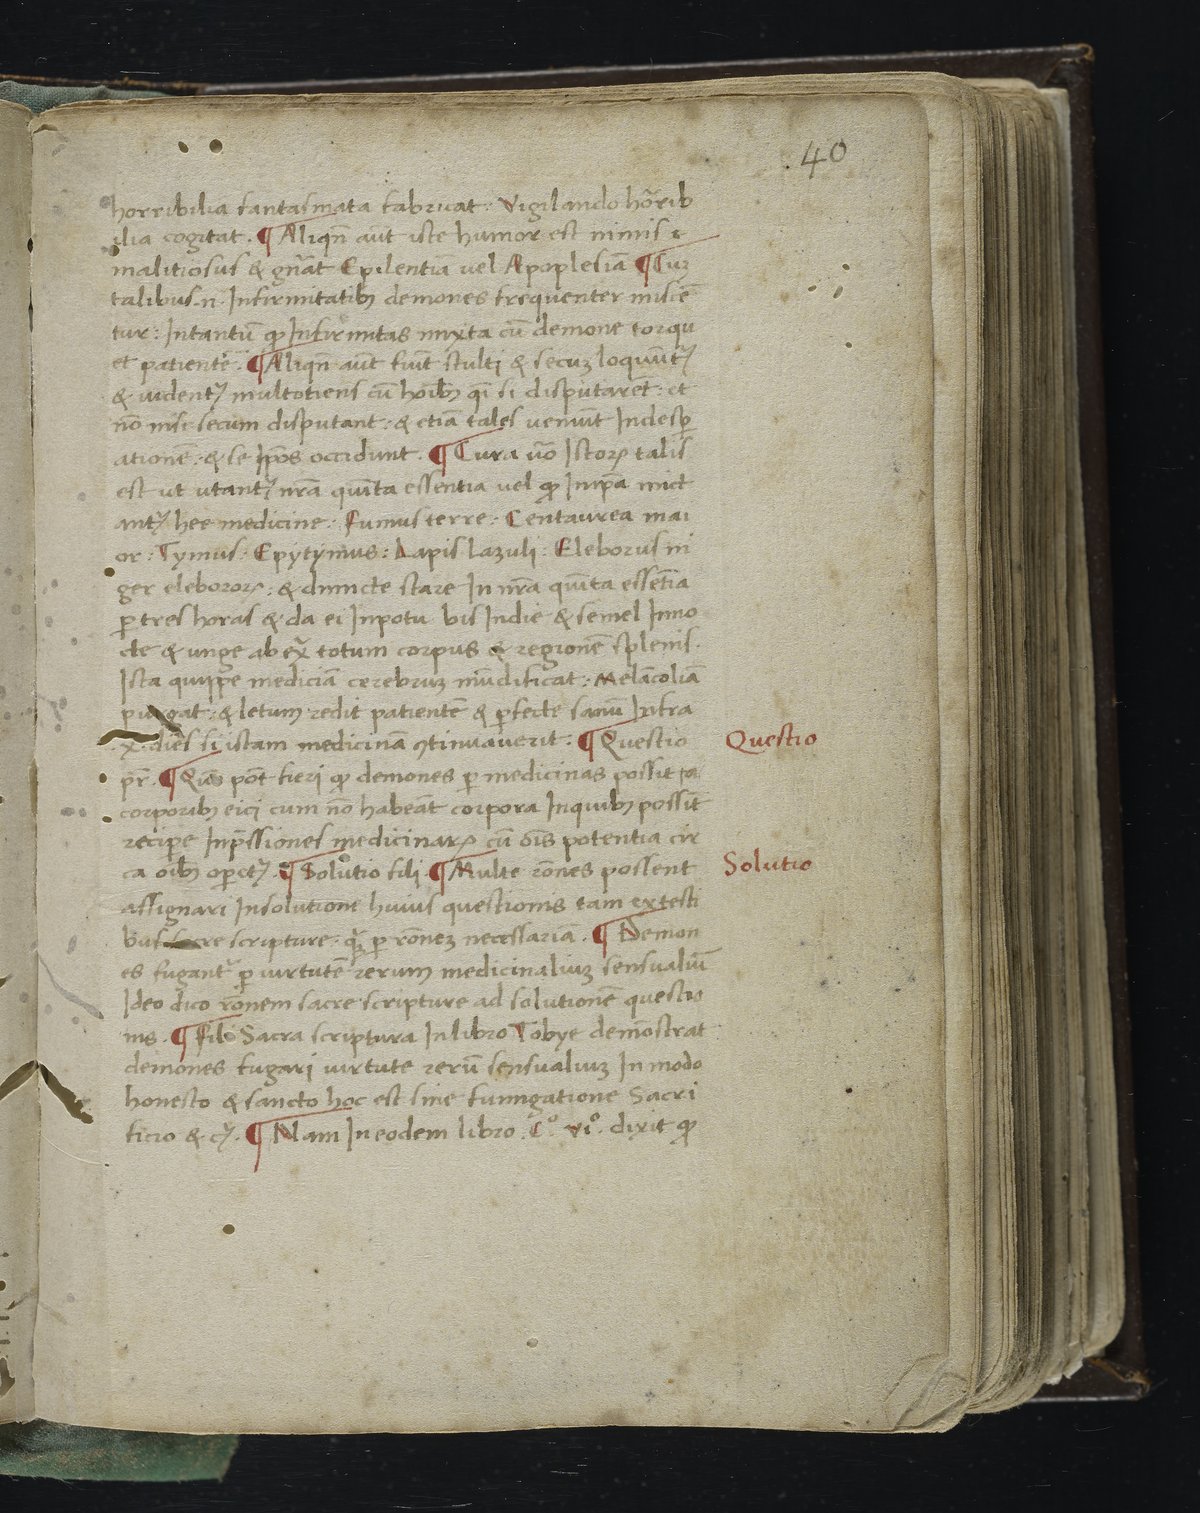 40
horribilia fantasmata fabricat: Vigilando hõrib
ilia cogitat. ¶ Aliqñ aũt iste humor est nimis
malitiosus & gñat Epilentiã vel Apoplesiã ¶ Cuz
talibus .n. Infirmitatibꝫ demones frequenter miscẽ
tur: Intantũ ꝙ Infirmitas mixta cũ demone torqu
et patientẽ. ¶ Aliqñ aũt fiũt stulti & secuz loquũtꝛ
& uidentꝛ multotiens cũ hoĩbꝫ qͣsi disputarẽt: et
nõ nisi secum disputant: & etiã tales veniũt Indesꝑ
ationẽ: & se Ipos occidunt. ¶ Cura uõ Istoꝝ talis
est ut utantꝛ nrã quĩta essentia vel ꝙ Inipã mict
antꝛ hee medicine: Fumus terre: Centaurea mai
or: Tymus: Epytymus: Lapis lazuli: Eleborus ni
ger eleboroꝝ: & dimicte stare In nrã quĩta essẽtia
ꝑ tres horas & da ei Inpotu bis Indie & semel Inno
cte & unge ab exͣ totum corpus & regionẽ splenis.
Ista quippe mediciã cerebruz mũdificat: Melãcoliã
purgat: & letum redit patientẽ & ꝑfecte sanũ Infra
.x. dies si istam medicinã ꝯtinuauerit. ¶ Questio
Questio
pr̃. ¶ Quõ põt fieri ꝙ demones ꝑ medicinas possit a
corporibꝫ eici cum nõ habeãt corpora Inquibꝫ possĩt
recipe Inp̃ssiones medicinaꝝ cũ oĩs potentia cir
ca oĩbꝫ oꝑetꝛ. ¶ Solutio fili. ¶ Multe rõnes possent
Solutio
assignari Insolutione huius questionis tam ex testi
bus sacre scripture: qͣꝫ ꝑ rõnez necessariã. ¶ Demon
es fugantꝛ ꝑ uirtutẽ rerum medicinaliuz sensualiũ
Ideo dico rõnem sacre scripture ad solutionẽ questio
nis. ¶ Fili Sacra scriptura In libro Tobye demõstrat
demones fugari uirtute rerũ sensualiuz In modo
honesto & sancto hoc est sine fumigatione Sacri
ficio & cꝛ. ¶ Nam In eodem libro .Cº. viº. dixit ꝙ